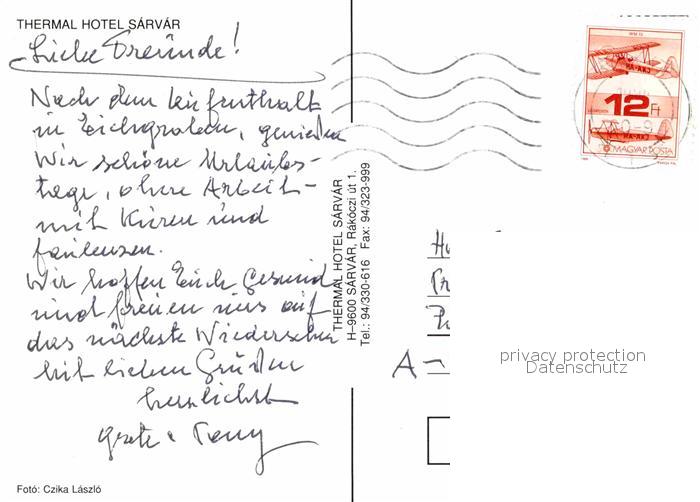 THERMAL HOTEL SÁRVÁR
Liebe Freunde!
Nach dem
in Eichgraben, genießen
wir schöne Urlaubs-
tage, ohne Arbeit -
mit Kuren und
faulenzen.
Wir hoffen Euch Gesund
und freuen uns auf
das nächste Wiedersehen
mit lieben Grüßen
herzlichst
Grete + Tony
Fotó: Czika László
THERMAL HOTEL SÁRVÁR
H-9600 SÁRVÁR, Rákóczi út 1.
Tel.: 94/330-616 Fax: 94/323-999
HA-AAJ
12 Ft
HA-AAJ
MAGYAR POSTA
A-
privacy protection
Datenschutz